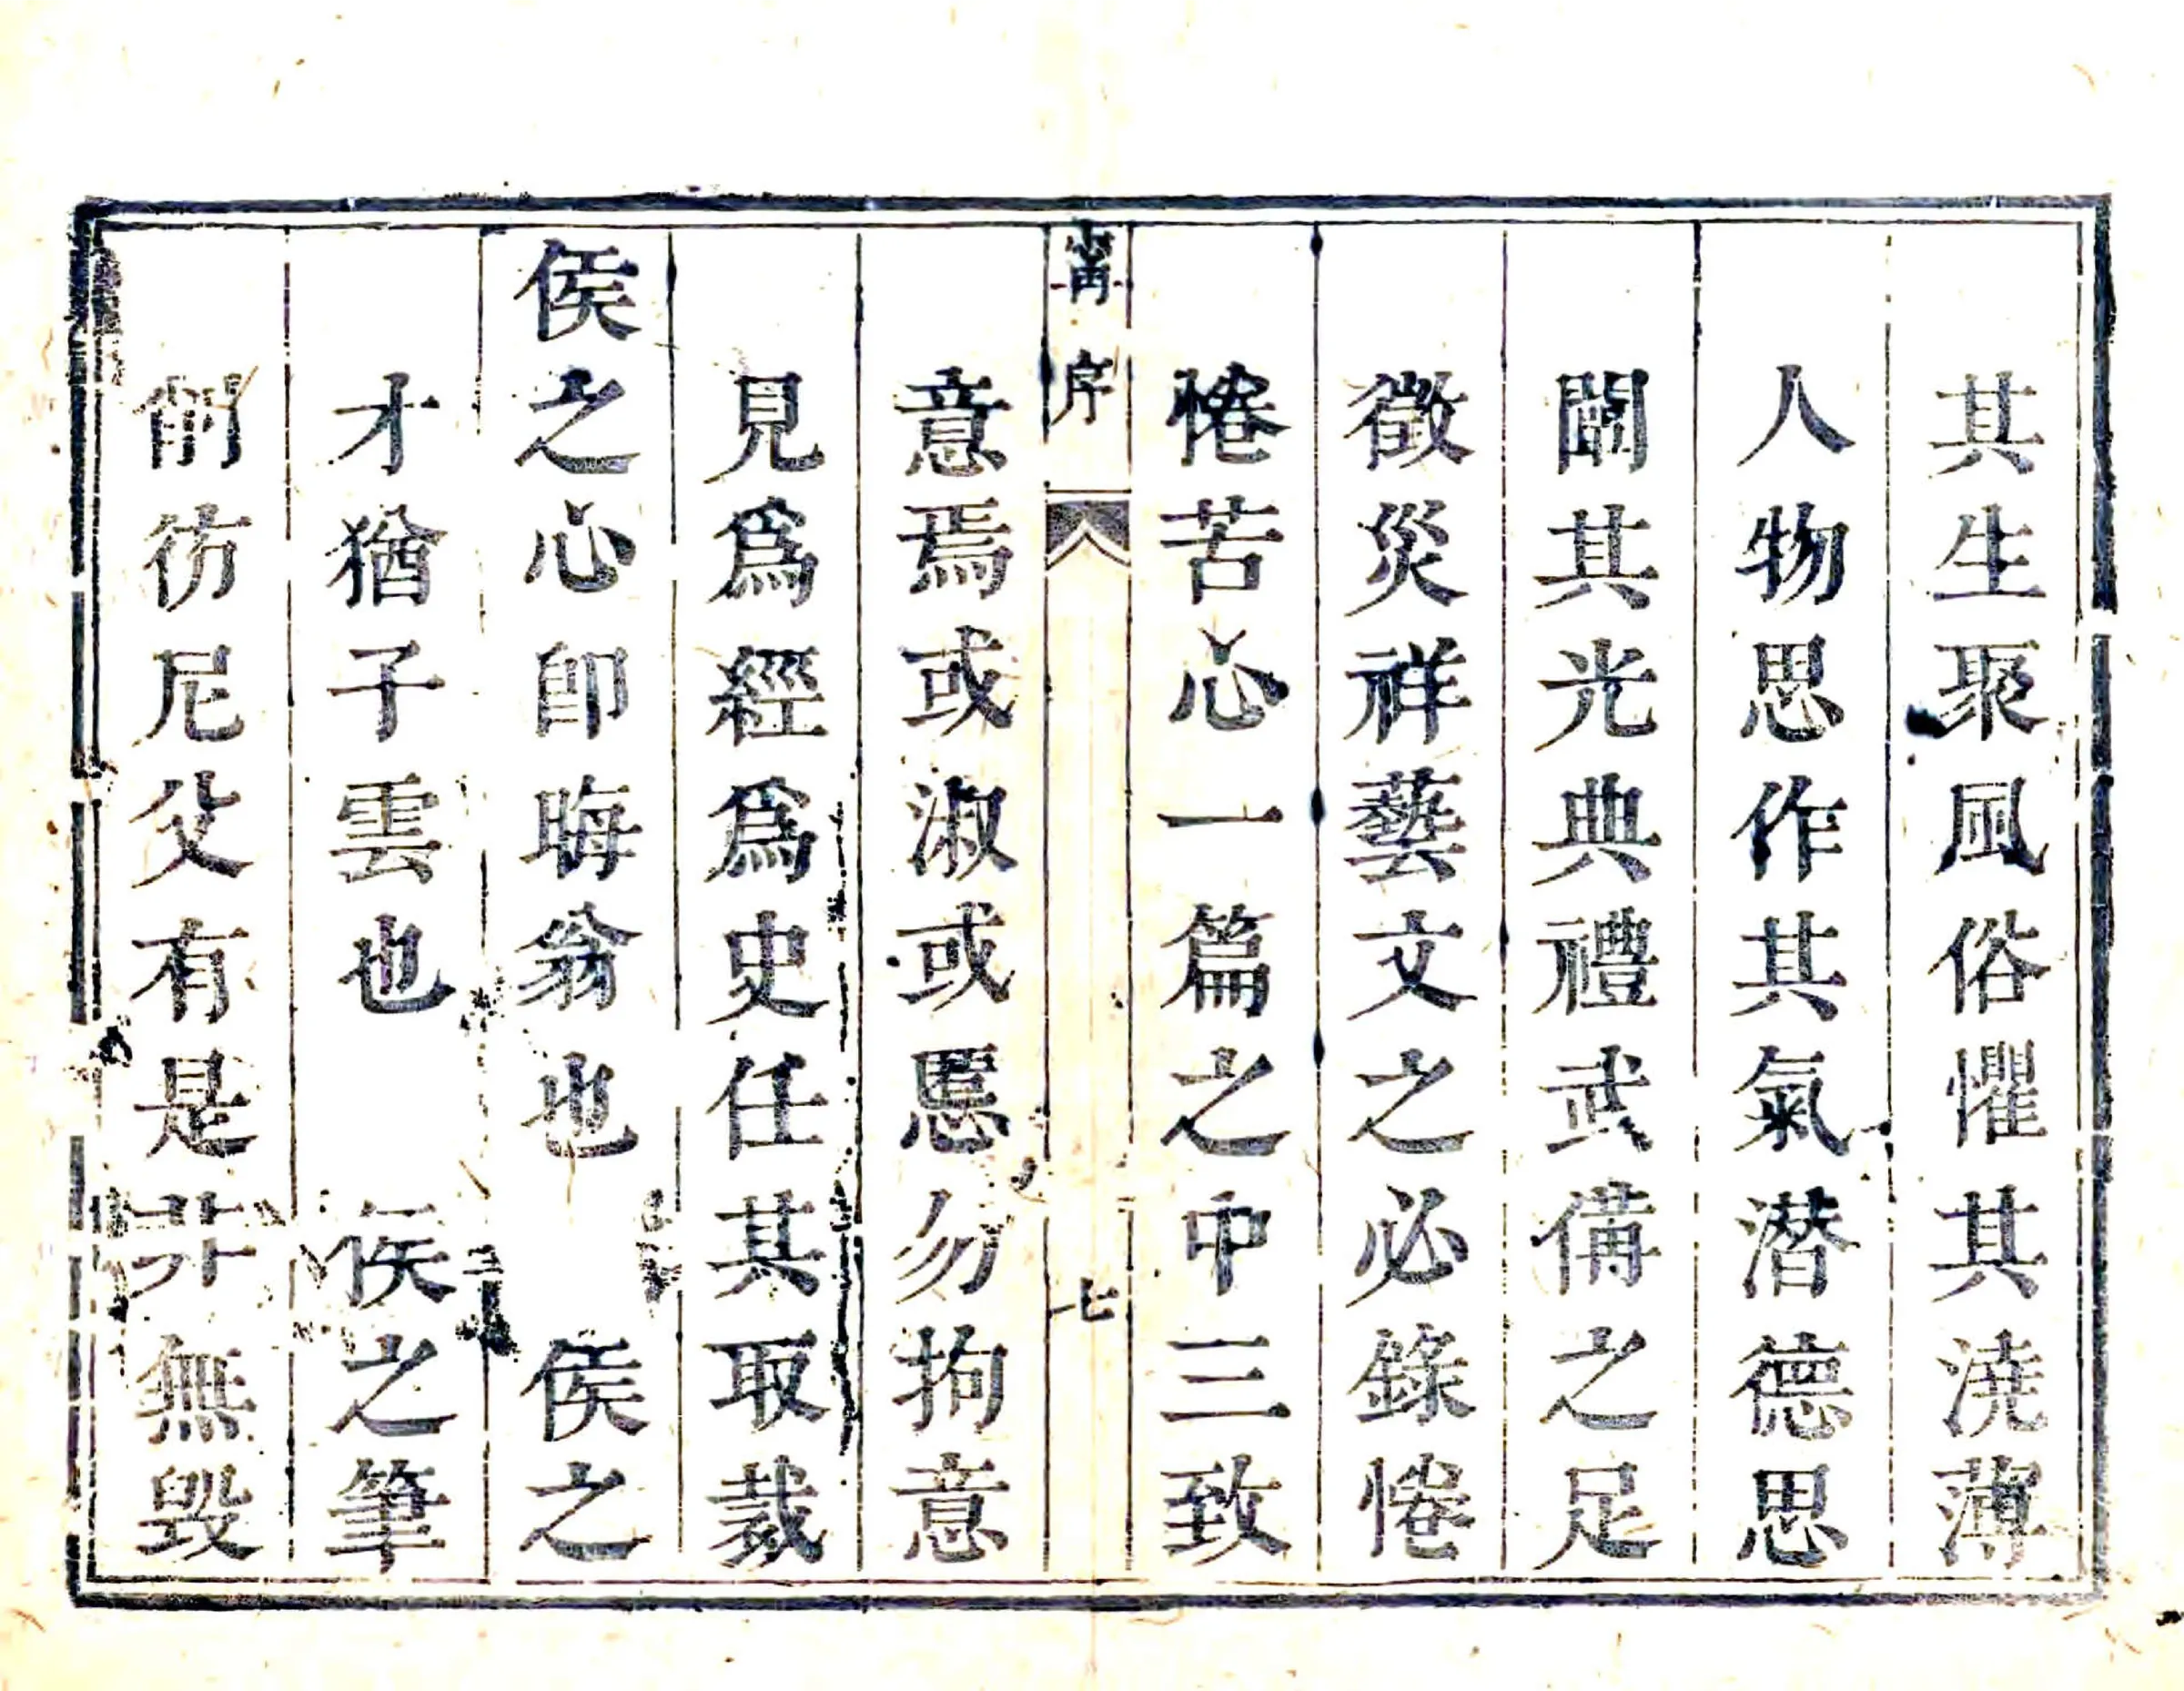 其生聚風俗懼其澆薄
人物思作其氣潜德思
闡其光典禮武備之足
徵災祥藝文之必錄惓
惓苦心一篇之中三致
甯序 七
意焉或淑或慝勿拘意
見爲經爲史任其取裁
侯之心卽晦翁也 侯之
才猶子雲也 侯之筆
削彷尼父有是非無毀